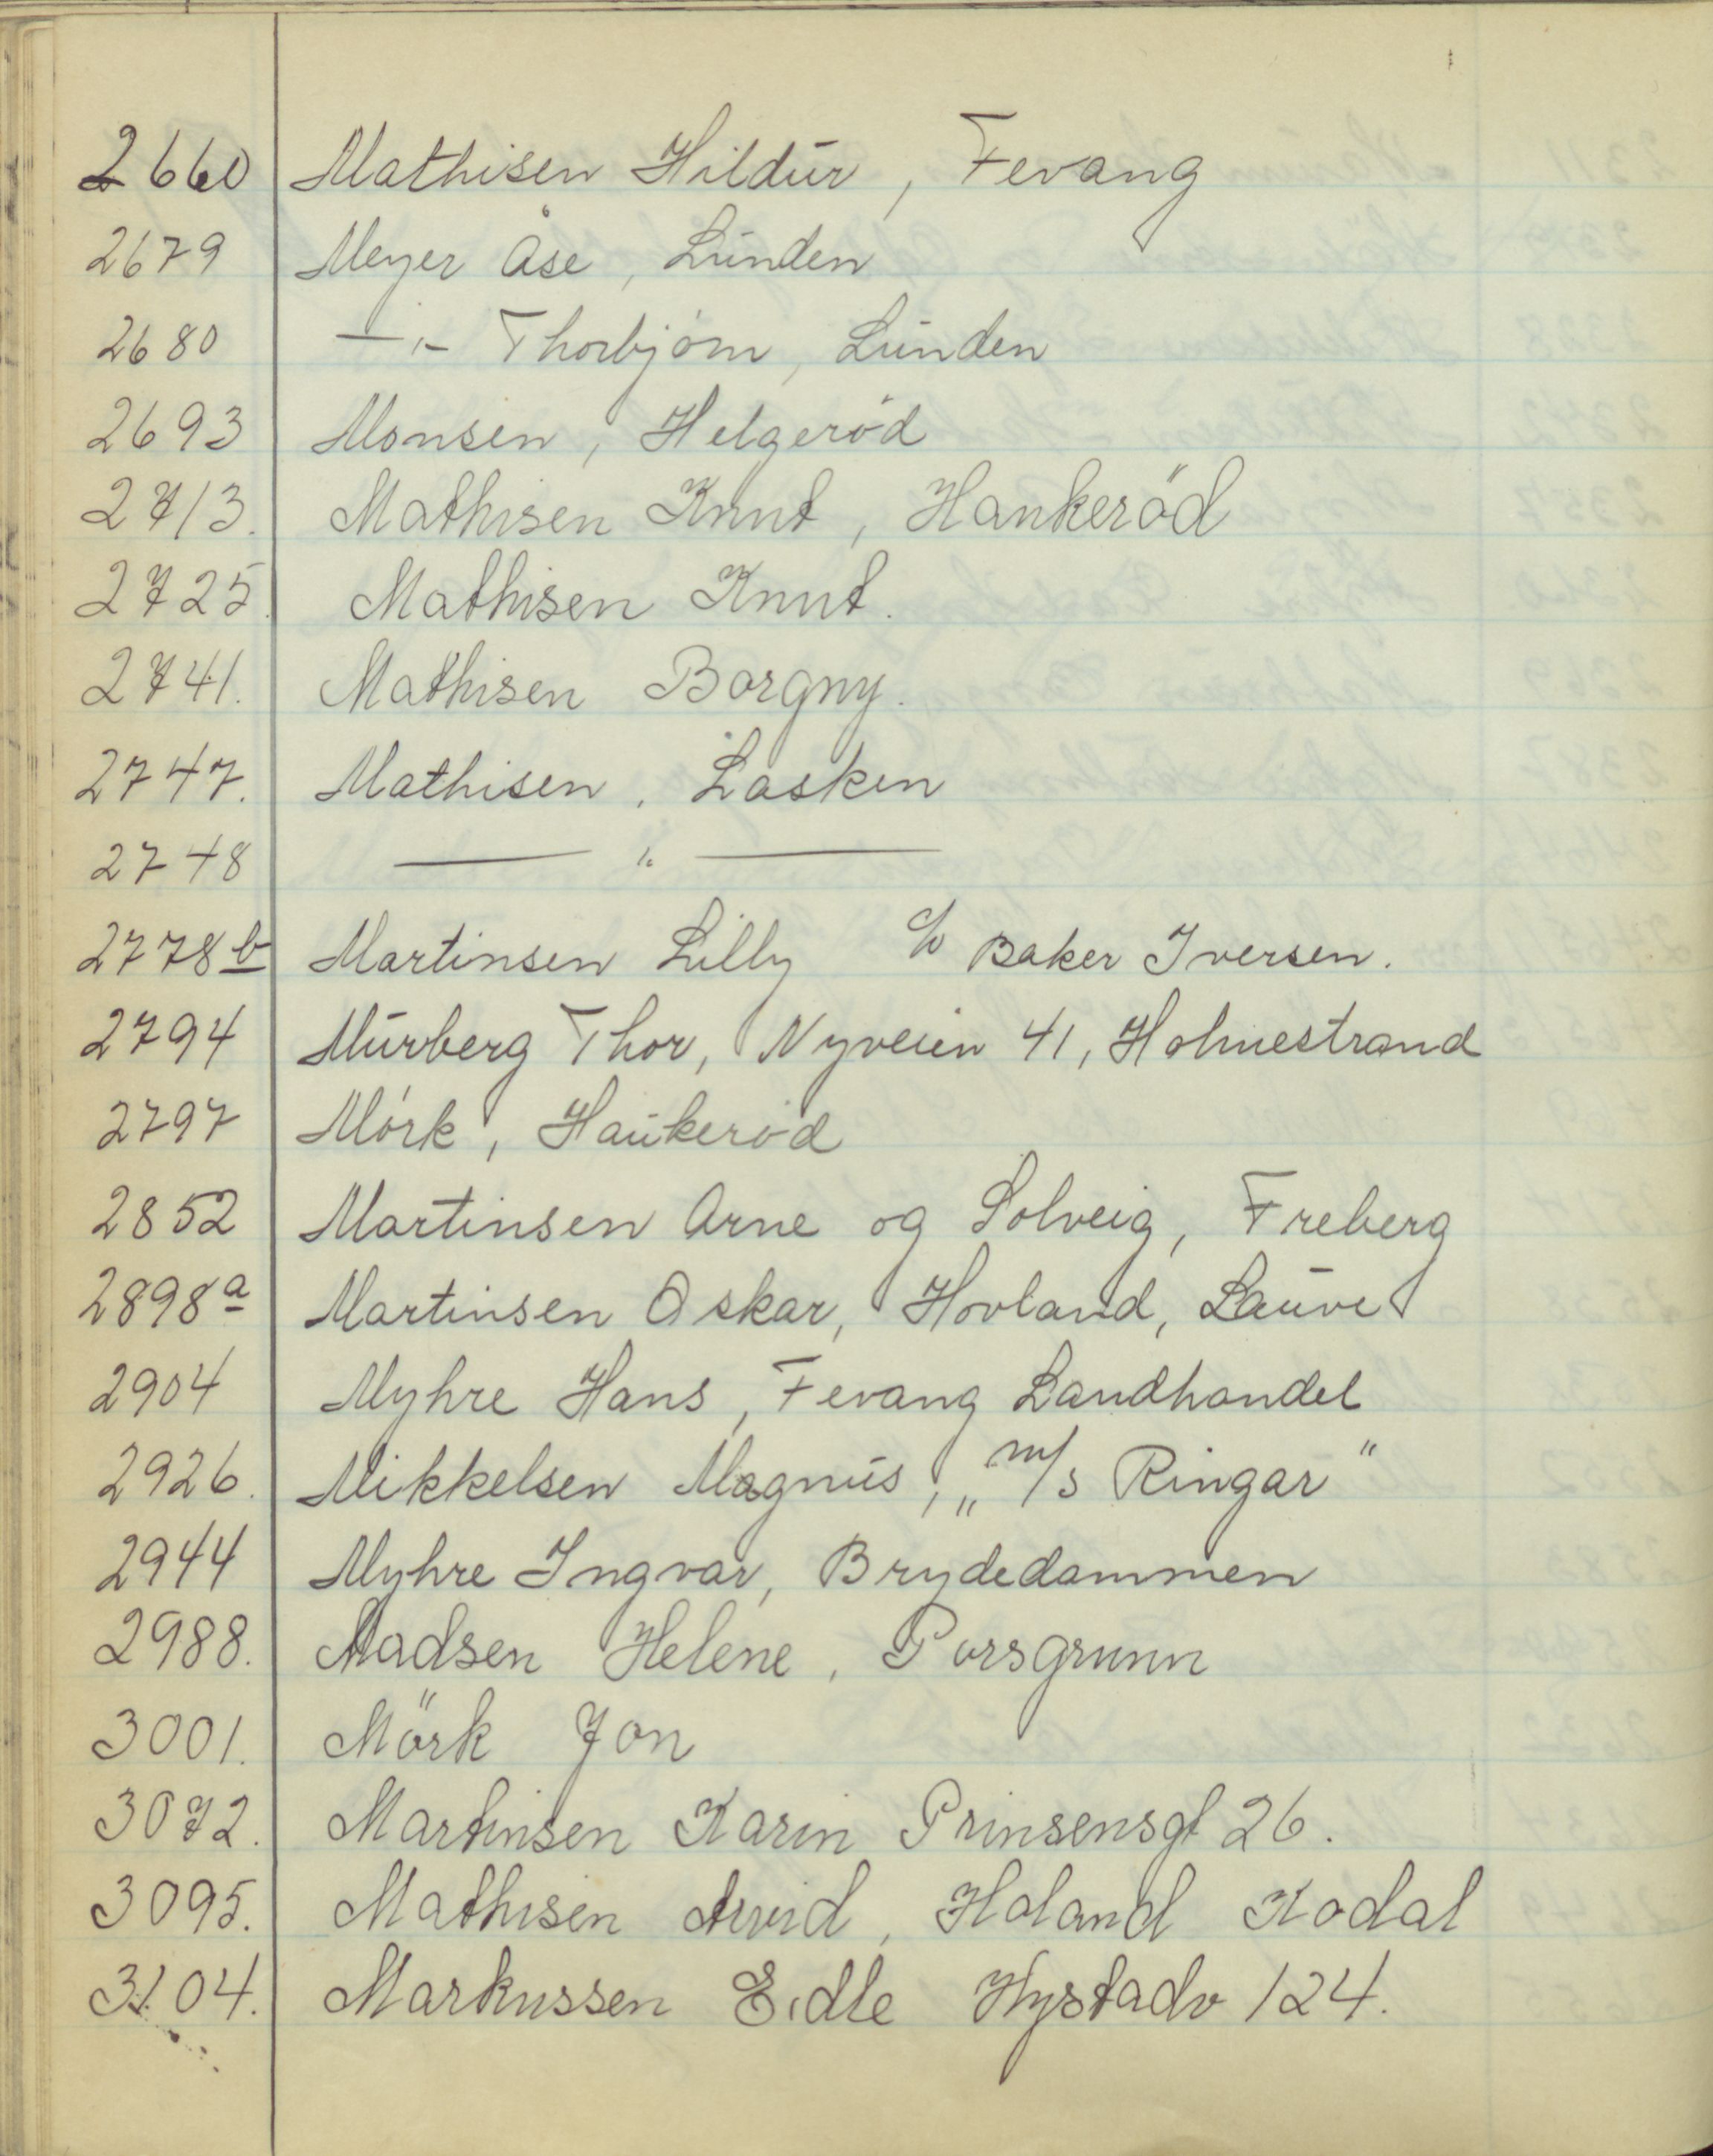 2660 Mathisen Hildur, Fevang
2679 Meyer Åse, Lunden
2680 —„— Thorbjørn, Lunden
2693 Monsen, Helgeröd
2713. Mathisen Knut, Haukeröd
2725. Mathisen Knut.
2741. Mathisen Borgny.
2747. Mathisen, Låsken
2748 —„—
2778b Martinsen Lilly c/o Baker Iversen.
2794 Murberg Thor, Nyveien 41, Holmestrand
2797 Mörk, Haukeröd
2852 Martinsen Arne og Solveig, Freberg
2898a Martinsen Oskar, Hovland, Lauve
2904 Myhre Hans, Fevang Landhandel
2926. Mikkelsen Magnus, „m/s Ringar"
2944 Myhre Ingvar, Brydedammen
2988. Madsen Helene, Porsgrunn
3001. Mörk Jon
3072. Martinsen Karin Prinsensgt 26.
3095. Mathisen Arvid, Holand Kodal
3104. Markussen Eidle Hystadv 124.